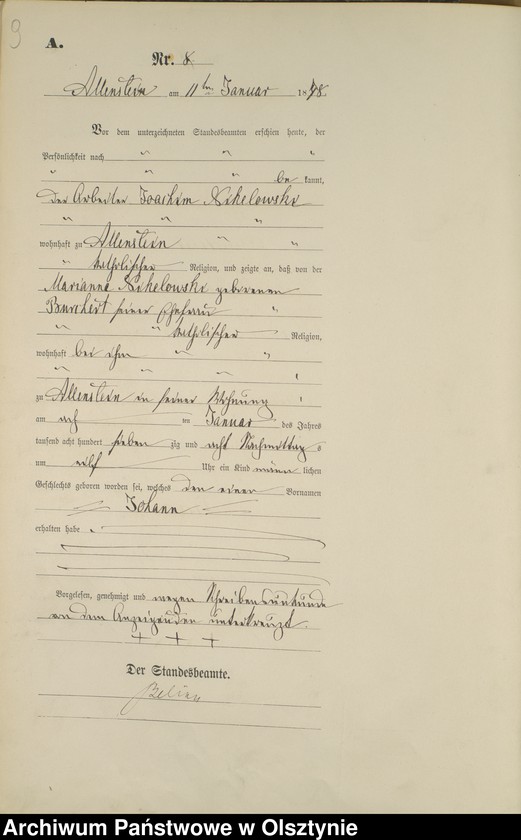 9
A.
Nr. 8
Allenstein am 11ten Januar 1878.
Vor dem unterzeichneten Standesbeamten erschien heute, der
Persönlichkeit nach
be kannt,
der Arbeiter Joachim Nikelowski
wohnhaft zu Allenstein
katholischer Religion, und zeigte an, daß von der
Marianne Nikelowski geborenen
Burchert seiner Ehefrau
katholischer Religion,
wohnhaft bei ihm
zu Allenstein in seiner Wohnung
am acht ten Januar des Jahres
tausend acht hundert sieben zig und acht Nachmittags
um eilf Uhr ein Kind männ lichen
Geschlechts geboren worden sei, welches den einen Vornamen
Johann
erhalten habe.
Vorgelesen, genehmigt und wegen Schreibensunkunde
von dem Anzeigenden unterkreuzt.
+ + +
Der Standesbeamte.
Belian
Archiwum Państwowe w Olsztynie